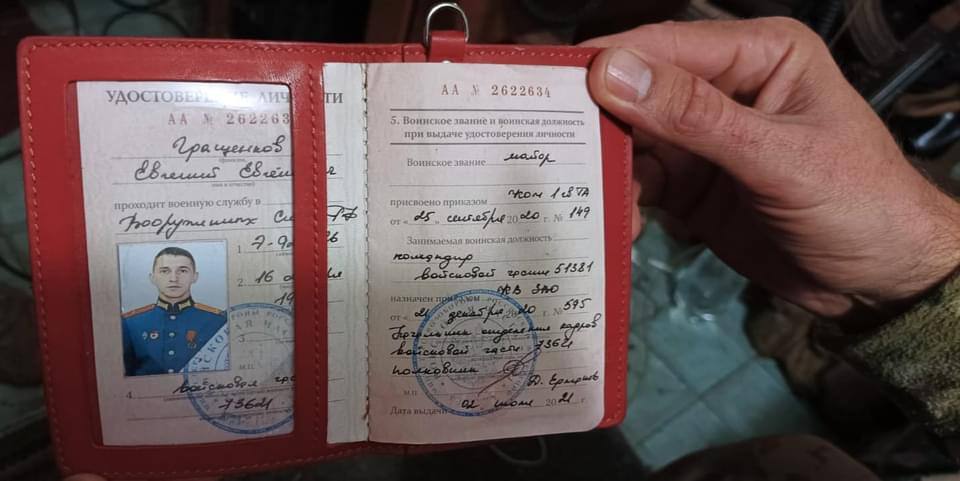 УДОСТОВЕРЕНИЕ ЛИЧНОСТИ
АА № 262263
Гращенков
(фамилия,
Евгений
имя и отчество)
проходит военную службу в
Вооруженных
1.
2. 16
3
М.П.
4. войсковая
73621
АА № 2622634
5. Воинское звание и воинская должность
при выдаче удостоверения личности
Воинское звание майор
присвоено приказом Ком 1 гв ТА
от « 25 » сентября 2020 г. № 149
Занимаемая воинская должность
командир
войсковой части 51381
назначен приказом КВ ЗВО
от « 21 » декабря 2020 № 595
отделения кадров
войсковой части 73621
полковник
М.П.
Дата выдачи 02 2021 г.